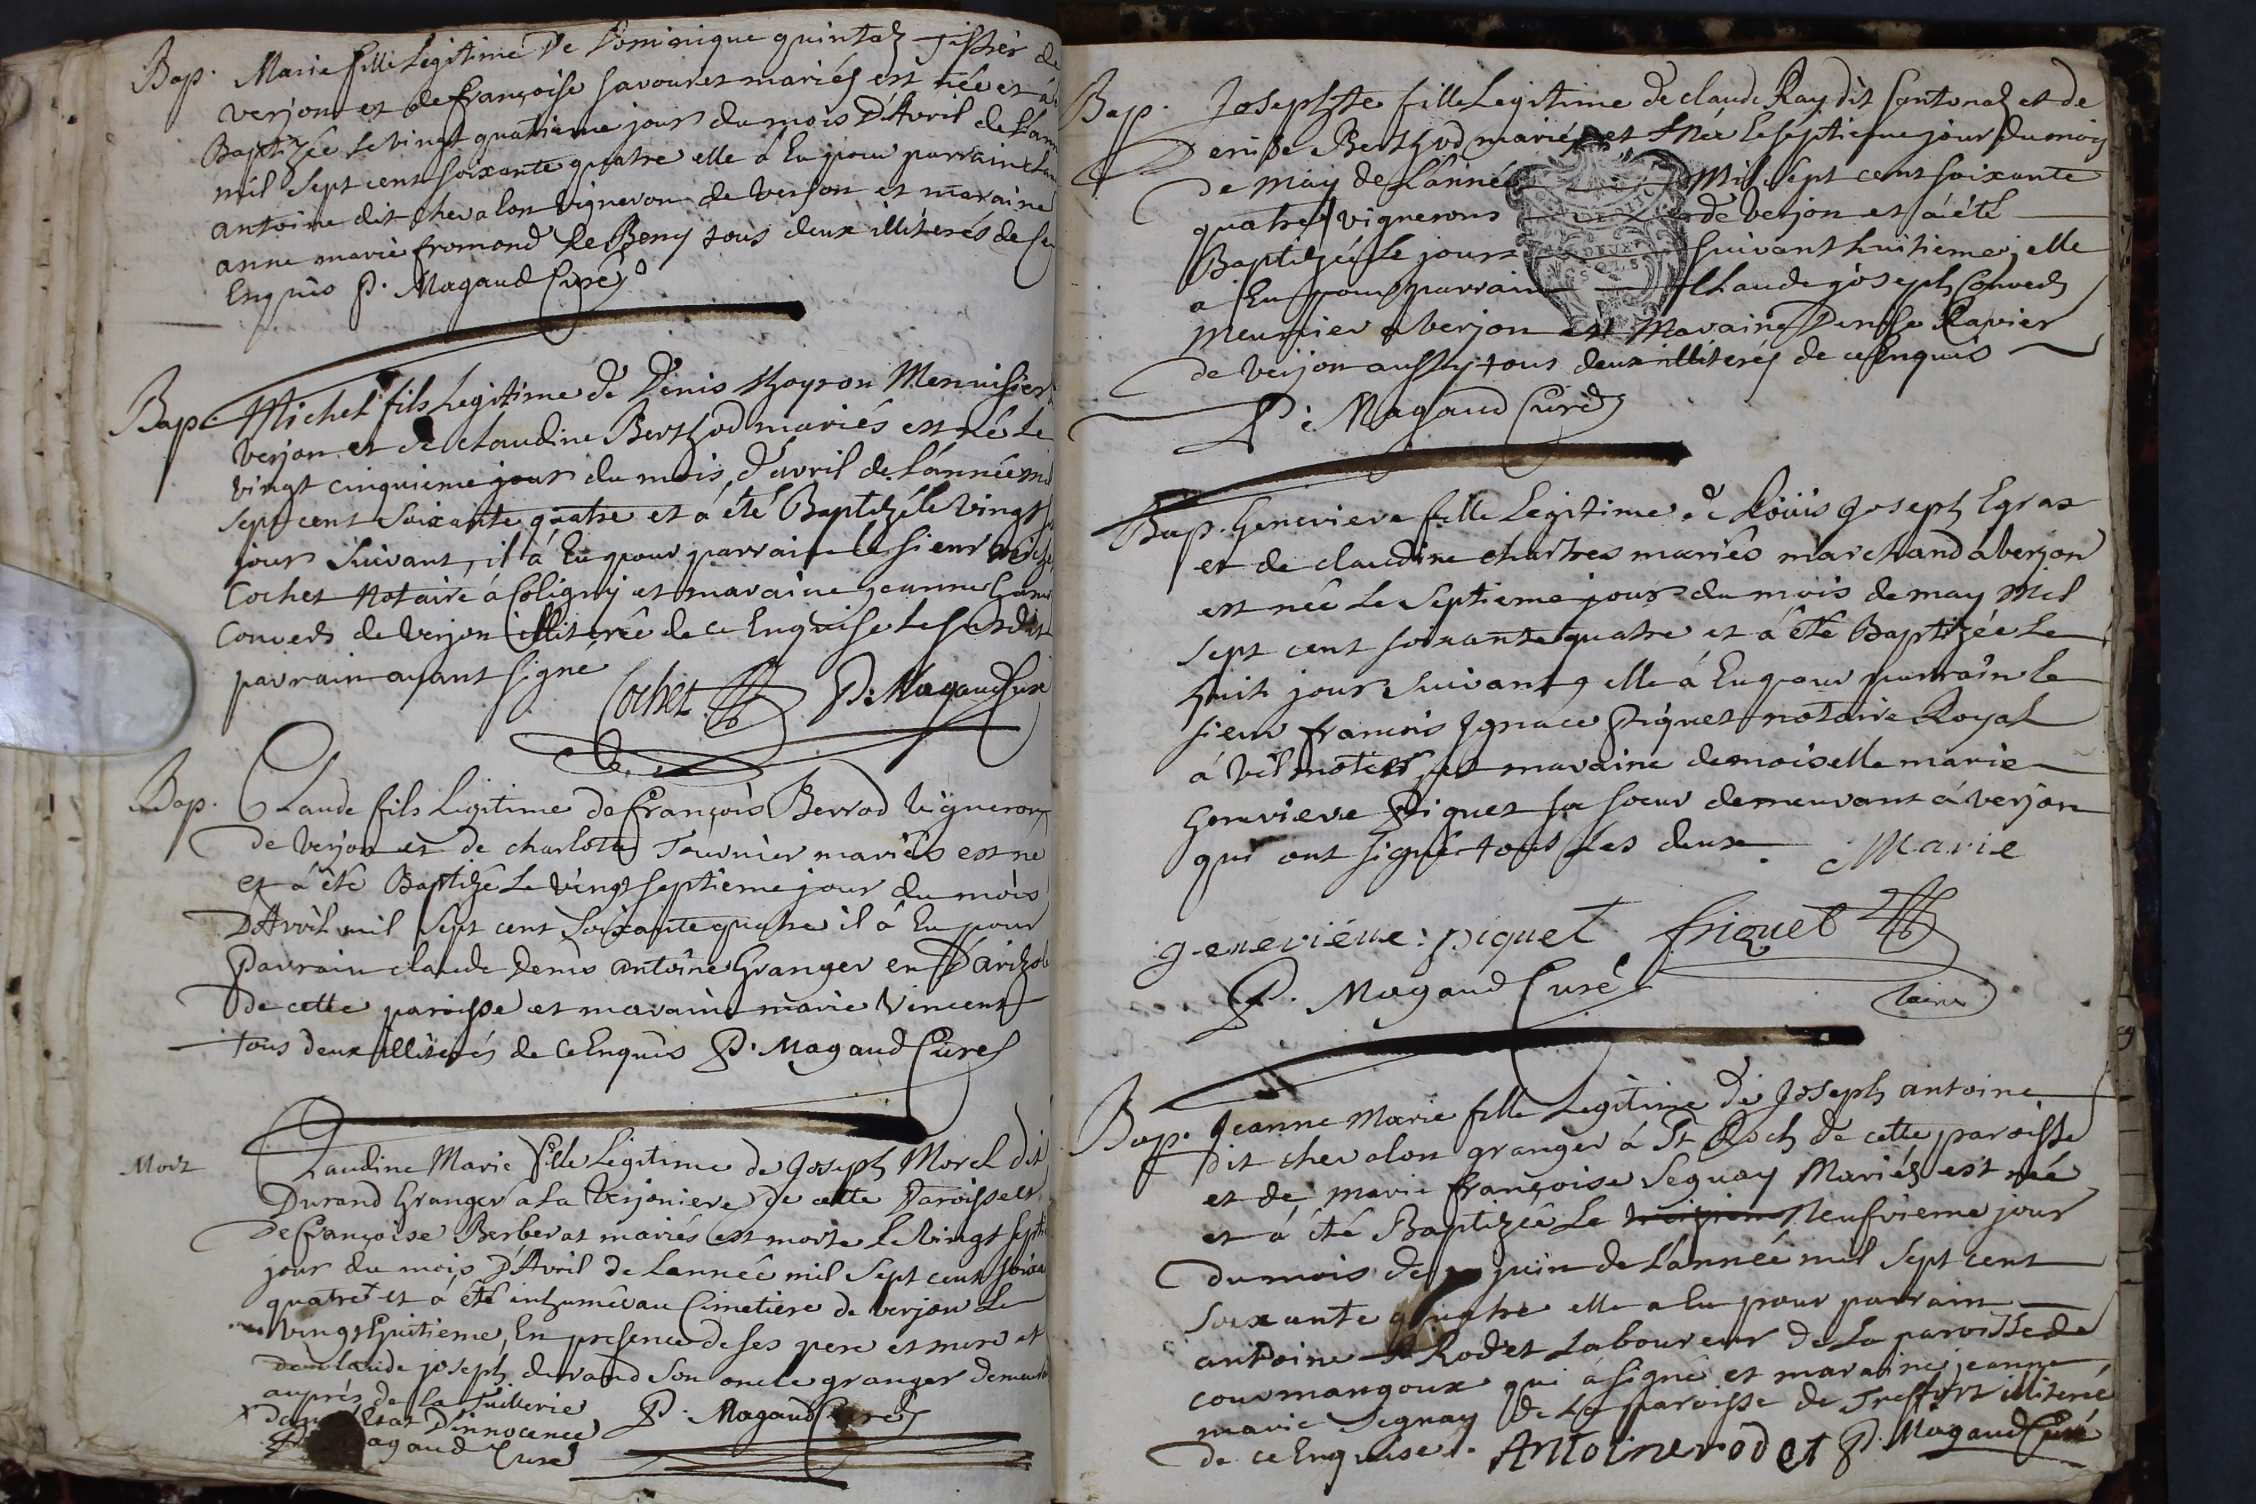 Bap. Marie fille Legitime De Dominique quintal Tissier de
verjon et de françoise savouret mariés est née et à été
Baptizée le vingt quatrieme jour du mois D'Avril de L'année
mil sept cent soixante quatre elle à Eu pour parrain
antoine dit chevalon vigneron de verjon et maraine
anne marie fromond de Beny tous deux illiterés de ce
Enquis P. Magaud Curé
Bap. Michel fils Legitime de Denis Menuisier
verjon et de claudine Berthod mariés est né le
vingt cinquieme jour du mois d'avril de L'année mil
sept cent soixante quatre et à été Baptizé le vingt
jour suivant, il à Eu pour parrain le sieur
Cochet Notaire à Coligny et maraine jeanne
Convers de verjon illiterée de ce Enquise le susdit
parrain ayant signé
Cochet P. Magaud Curé
Bap. Claude fils Legitime de françois Berrod vigneron
de verjon et de charlotte Tournier mariés est né
et à été Baptizé le vingt septieme jour du mois
D'Avril mil sept cent soixante quatre il à Eu pour
Parrain claude Denis antoine Granger en
de cette paroisse et maraine marie Vincent
tous deux illiterés de ce Enquis P. Magaud Curé
Mort Claudine Marie fille Legitime de Joseph Morel dit
Durand Granger a la verjoniere de cette Paroisse et
De françoise Berberat mariés est morte le vingt sept
jour du mois D'Avril de Lannée mil sept cent soixante
quatre et à été inhumée au Cimetiere de verjon le
vingt huitieme, En presence de ses pere et mere et
de claude joseph durand son oncle granger demeurant
auprés de la Tuillerie
dans L'Etat D'innocence P. Magaud Curé
P. Magaud Curé
Bap. Josephte fille Legitime de claude Ray dit et de
Denise Berthod mariés est Née le septieme jour du mois
de may de L'année Mil sept cent soixante
quatre vignerons de verjon et à été
Baptizée le jour suivant huitieme, elle
à Eu pour parrain Claude joseph Convers
Meunier a verjon et Maraine Denise Ravier
de verjon aussy tous deux illiterés de ce Enquis
P. Magaud Curé
Bap. Genevieve fille Legitime de Loüis Joseph Egraz
et de claudine chartres mariés marchand a verjon
est née le septieme jour du mois de may mil
sept cent soixante quatre et à été Baptizée le
huit jour suivant elle à Eu pour parrain le
sieur francois Ignace Piquet notaire Royal
à et maraine demoiselle marie
Genevieve Piquet sa soeur demeurant à verjon
qui ont signé tous les deux. Marie
genevieve: piquet friquet
P. Magaud Curé
Bap. Jeanne Marie fille Legitime de Joseph antoine
dit chevalon granger à St Roch de cette paroisse
et de marie françoise Seguay Mariés est née
et à été Baptizée le Neufvieme jour
du mois de juin de L'année mil sept cent
soixante quatre elle a Eu pour parrain
antoine Rodet Laboureur de La paroisse de
courmangoux qui à signé et maraine jeanne
marie Seguay de La paroisse de Treffort illiterée
de ce Enquise. Antoine rodet P. Magaud Curé